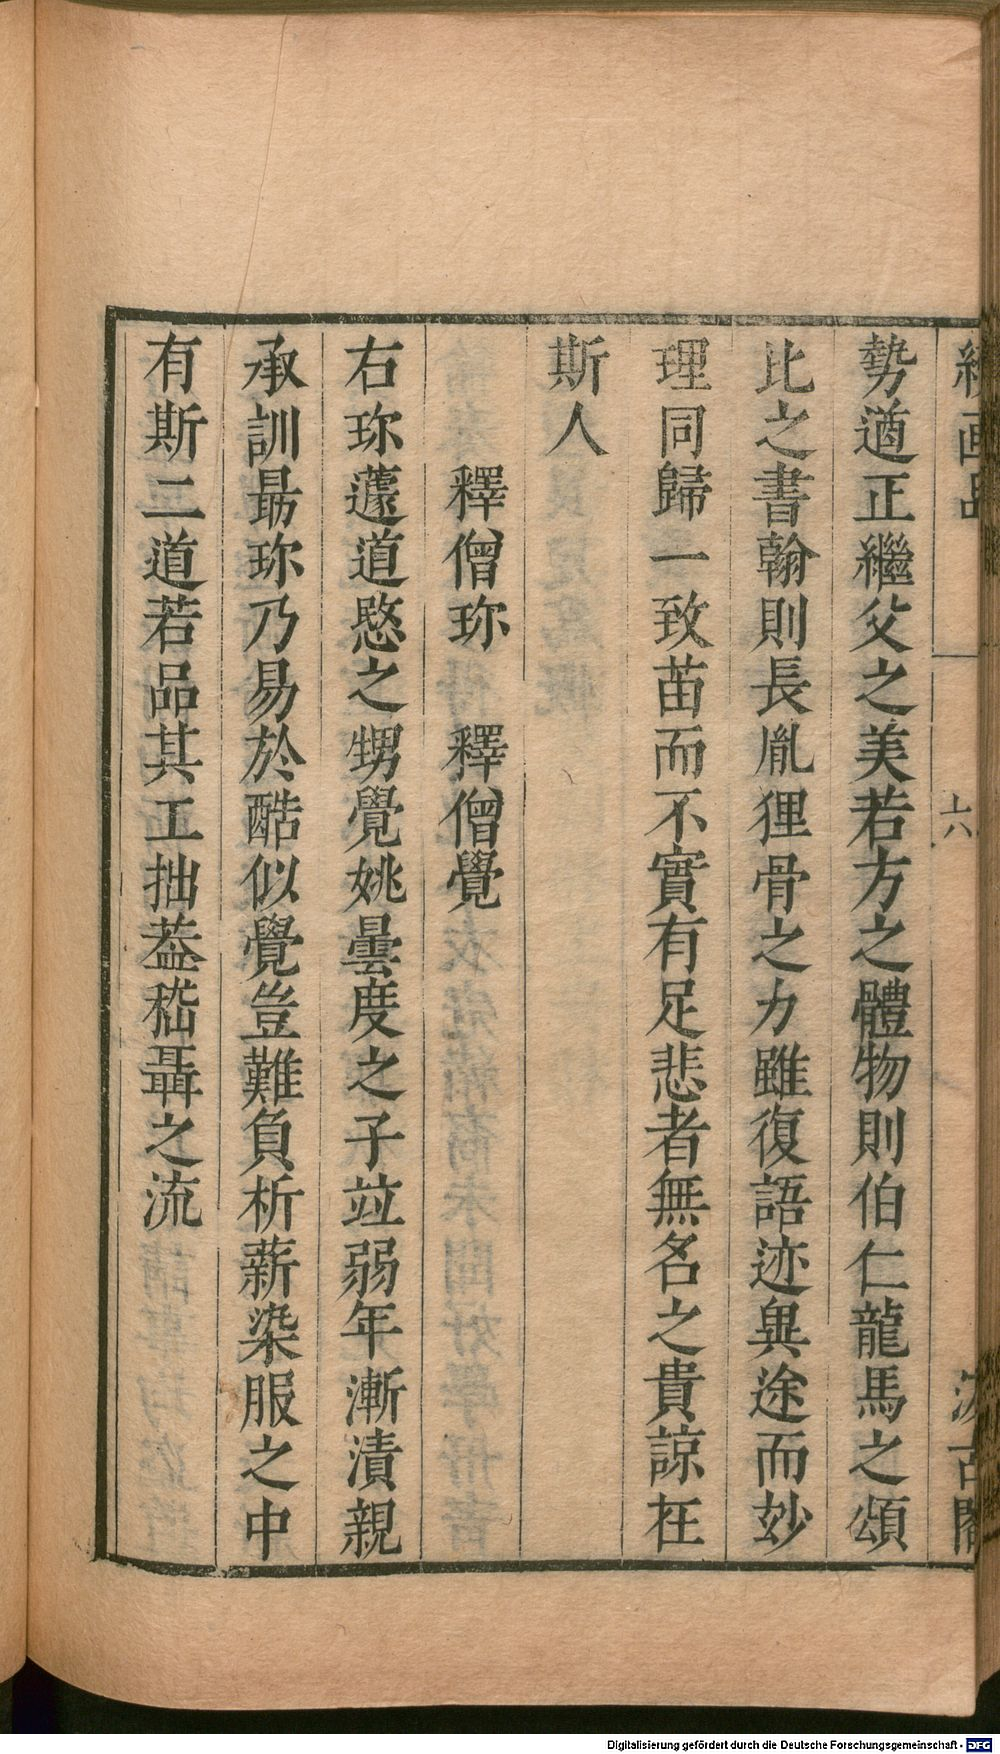 續画品
六
汲古閣
勢遒正繼父之美若方之體物則伯仁龍馬之頌
比之書翰則長胤狸骨之力雖復語迹異途而妙
理同歸一致苗而不實有足悲者無名之貴諒在
斯人
釋僧珎 釋僧覺
右珎蘧道愍之甥覺姚曇度之子竝弱年漸漬親
承訓勗珎乃易於酷似覺豈難負析薪染服之中
有斯二道若品其工拙葢嵇聶之流
Digitalisierung gefördert durch die Deutsche Forschungsgemeinschaft - DFG